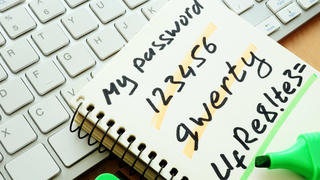 My password
123456
qwerty
U4Re8lte3=